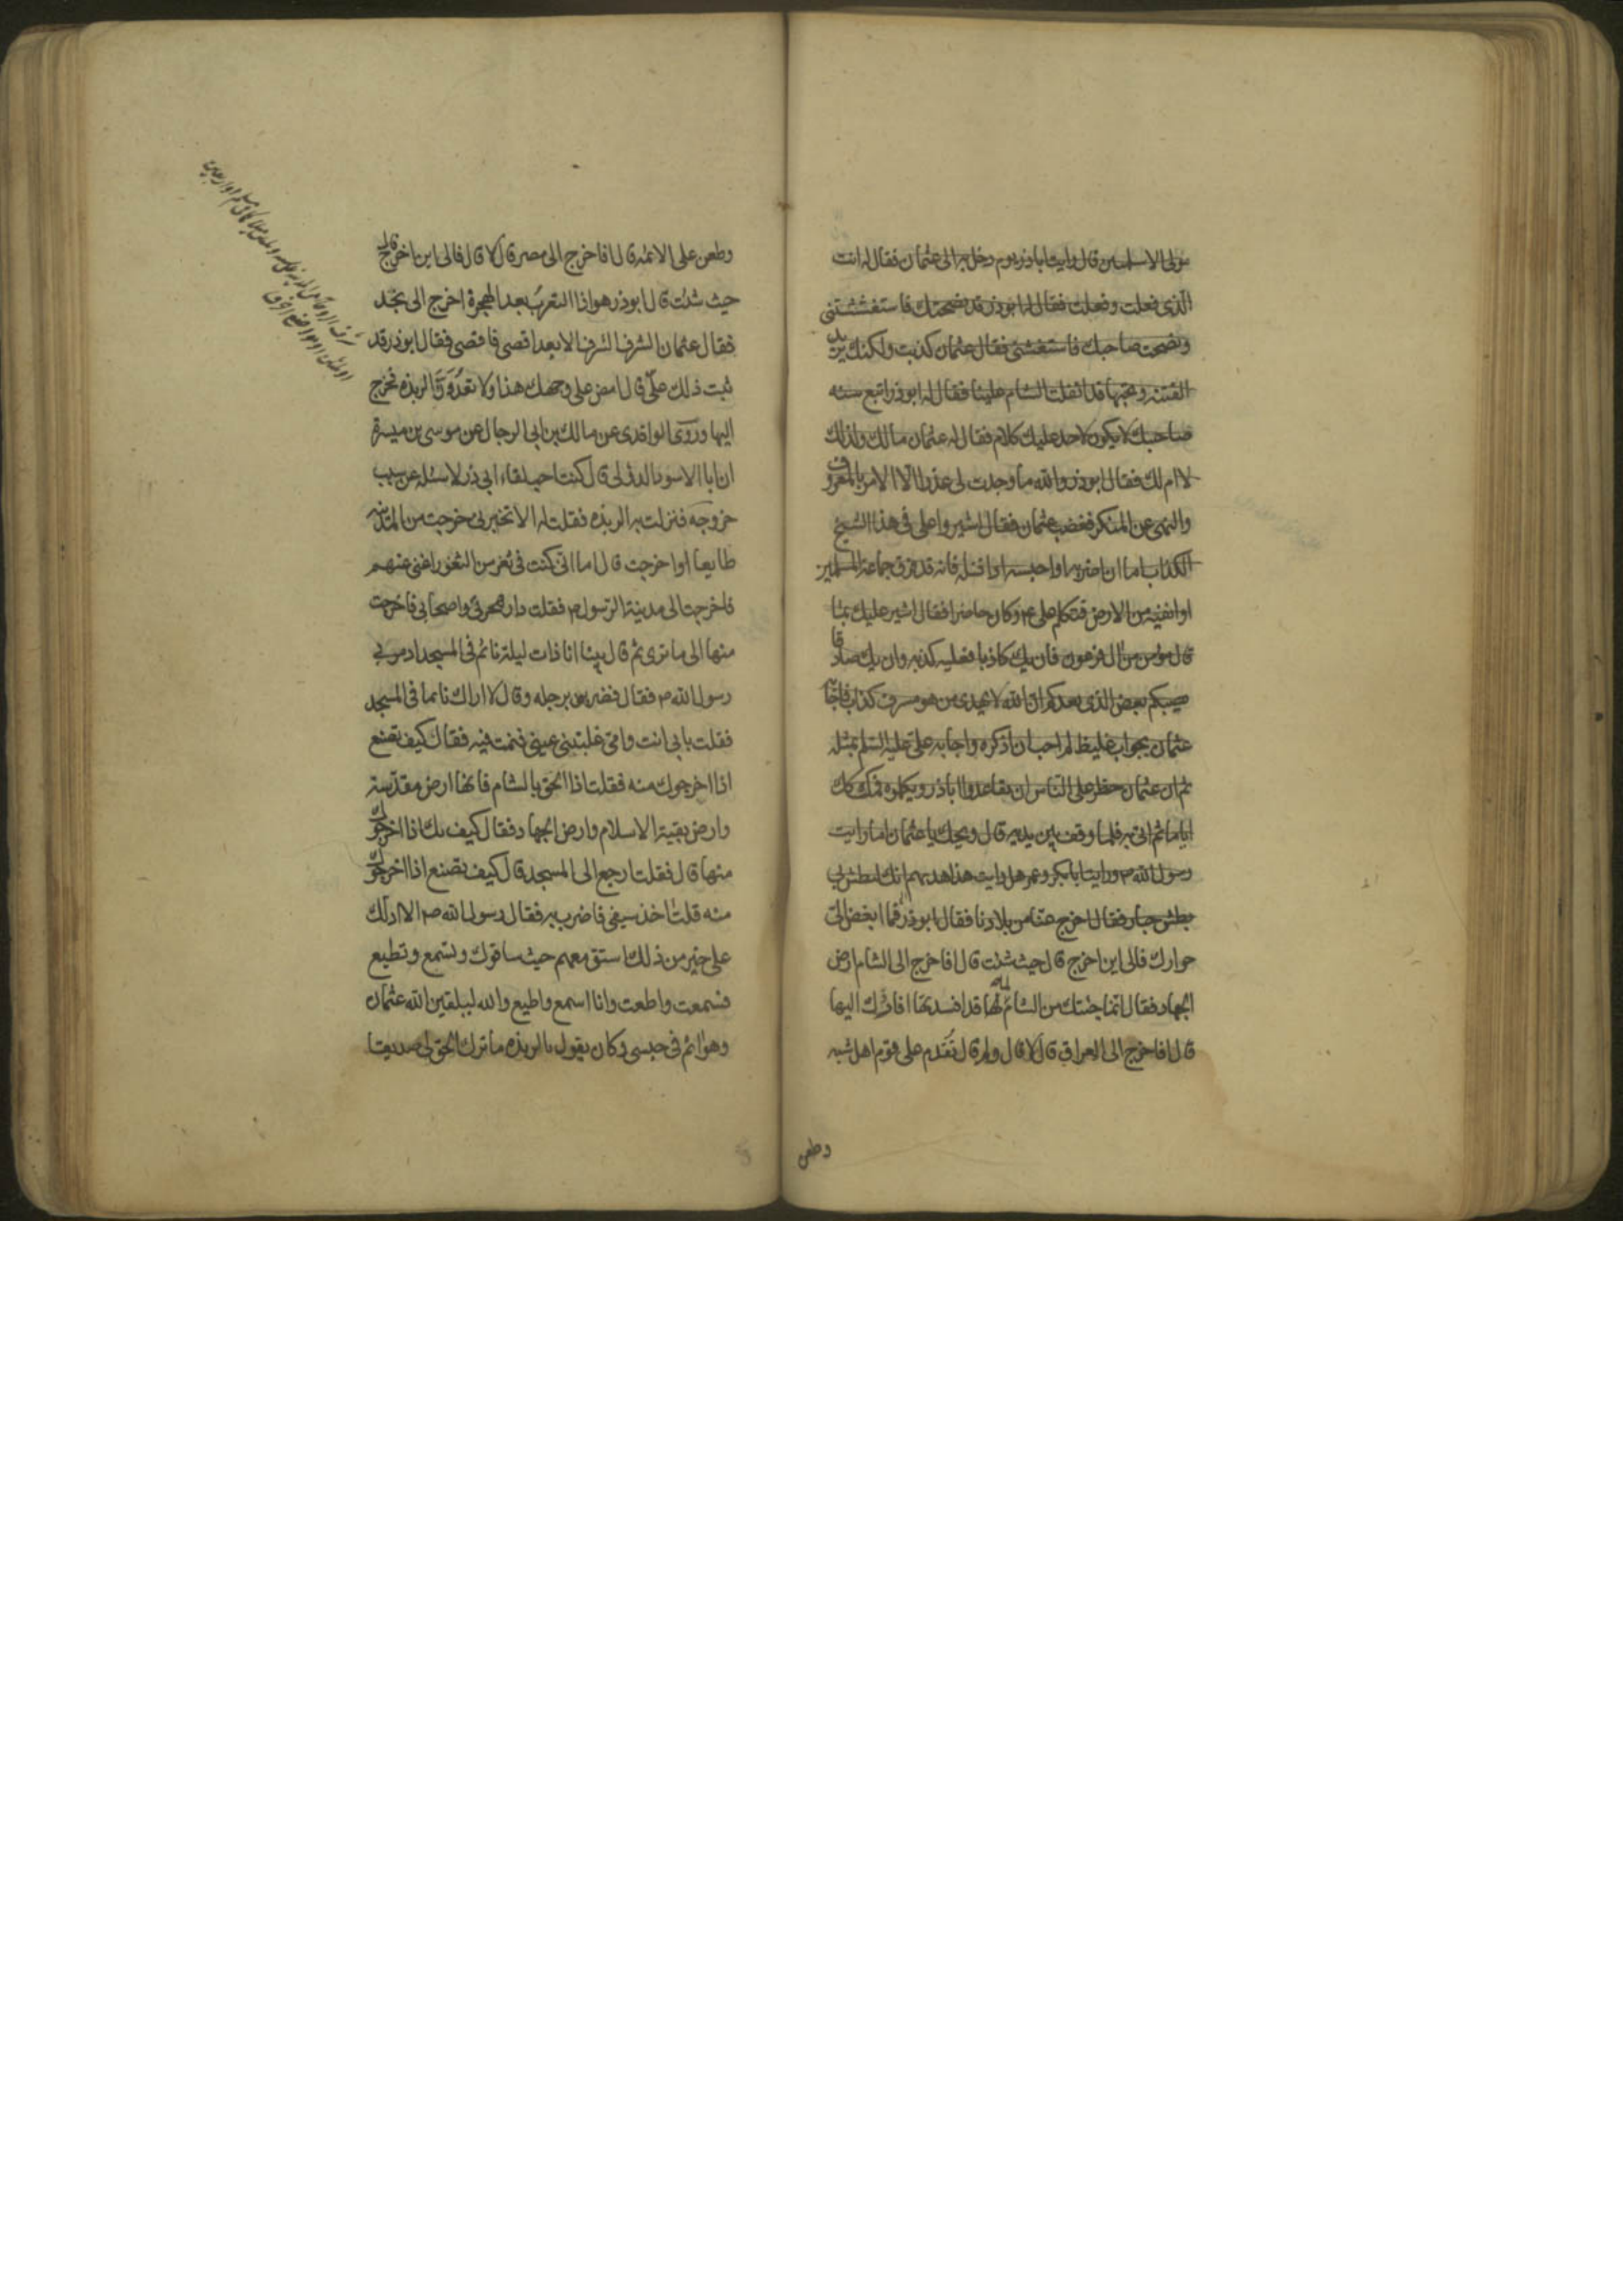 مولى الاسلميين قال رايت اباذر يوم دخل به الى عثمان فقال له انت
الذى فعلت وفعلت فقال له ابوذر قد نصحتك فاستغششتنى
ونصحت صاحبك فاستغشنى فقال عثمان كذبت ولكنك تريد
الفتنة وتحبها قد انغلت الشام علينا فقال له ابوذر اتبع سنه
صاحبك لا يكون لاحد عليك كلام فقال له عثمان مالك ولذلك
لا ام لك فقال ابوذر والله ما وجدت لى عذرا الا الامر بالمعروف
والنهى عن المنكر فغضب عثمان فقال اشيروا على فى هذا الشيخ
الكذاب اما ان اضربه او احبسه او اقتله فانه قد فرق جماعة المسلمين
او انفيه من الارض فتكلم على ع وكان حاضرا فقال اشير عليك بما
قال مؤمن من ال فرعون فان يك كاذبا فعليه كذبه وان يك صادقا
يصبكم بعض الذى يعدكم ان الله لا يهدى من هو مسرف كذاب فاجابه
عثمان بجواب غليظ لم احب ان اذكره واجابه على عليه السلم بمثله
ثم ان عثمان حظر على الناس ان يقاعدوا اباذر ويكلموه فمكث كك
اياما ثم اتى به فلما وقف بين يديه قال ويحك يا عثمان اما رايت
رسول الله ص ورايت ابابكر وعمر هل رايت هذا هديهم انك لتبطش بى
بطش جبار فقال اخرج عنا من بلادنا فقال ابوذر فما ابغض الى
جوارك فالى اين اخرج قال حيث شئت قال فاخرج الى الشام ارض
الجهاد فقال انما جلبتك من الشام لما قد افسدتها افاردك اليها
قال افاخرج الى العراق قال لا قال ولم قال تقدم على قوم اهل شبه
وطعن
وطعن على الائمه قال فاخرج الى مصر قال لا قال فالى اين اخرج قال
حيث شئت قال ابوذر هو اذا التعرب بعد الهجرة اخرج الى نجد
فقال عثمان الشرف الشرف الابعد اقصى فاقصى فقال ابوذر قد
ثبت ذلك على قال امض على وجهك هذا ولا تعدون الربذه فخرج
اليها وروى الواقدى عن مالك بن ابى الرجال عن موسى بن ميسرة
ان ابا الاسود الدؤلى قال كنت احب لقاء ابى ذر لاسئله عن سبب
خروجه فنزلت به الربذه فقلت له الا تخبرنى خرجت من المدينه
طايعا او اخرجت قال اما انى كنت فى ثغر من الثغور اغنى عنهم
فاخرجت الى مدينة الرسول ص فقلت دار هجرتى واصحابى فاخرجت
منها الى ما ترى ثم قال بينا انا ذات ليلة نائم فى المسجد اذ مر بى
رسول الله ص فقال فضربنى برجله وقال لا اراك نائما فى المسجد
فقلت بابى انت وامى غلبتنى عينى فنمت فيه فقال كيف تصنع
اذا اخرجوك منه فقلت اذا الحق بالشام فانها ارض مقدسة
وارض بقية الاسلام وارض الجهاد فقال كيف بك اذا اخرجوك
منها قال فقلت ارجع الى المسجد قال كيف تصنع اذا اخرجوك
منه قلت اخذ سيفى فاضرب به فقال رسول الله ص الا ادلك
على خير من ذلك استق معهم حيث ساقوك وتسمع وتطيع
فسمعت واطعت وانا اسمع واطيع والله ليلقين الله عثمان
وهو اثم فى جنبى وكان يقول بالربذه ما ترك الحق لى صديقا